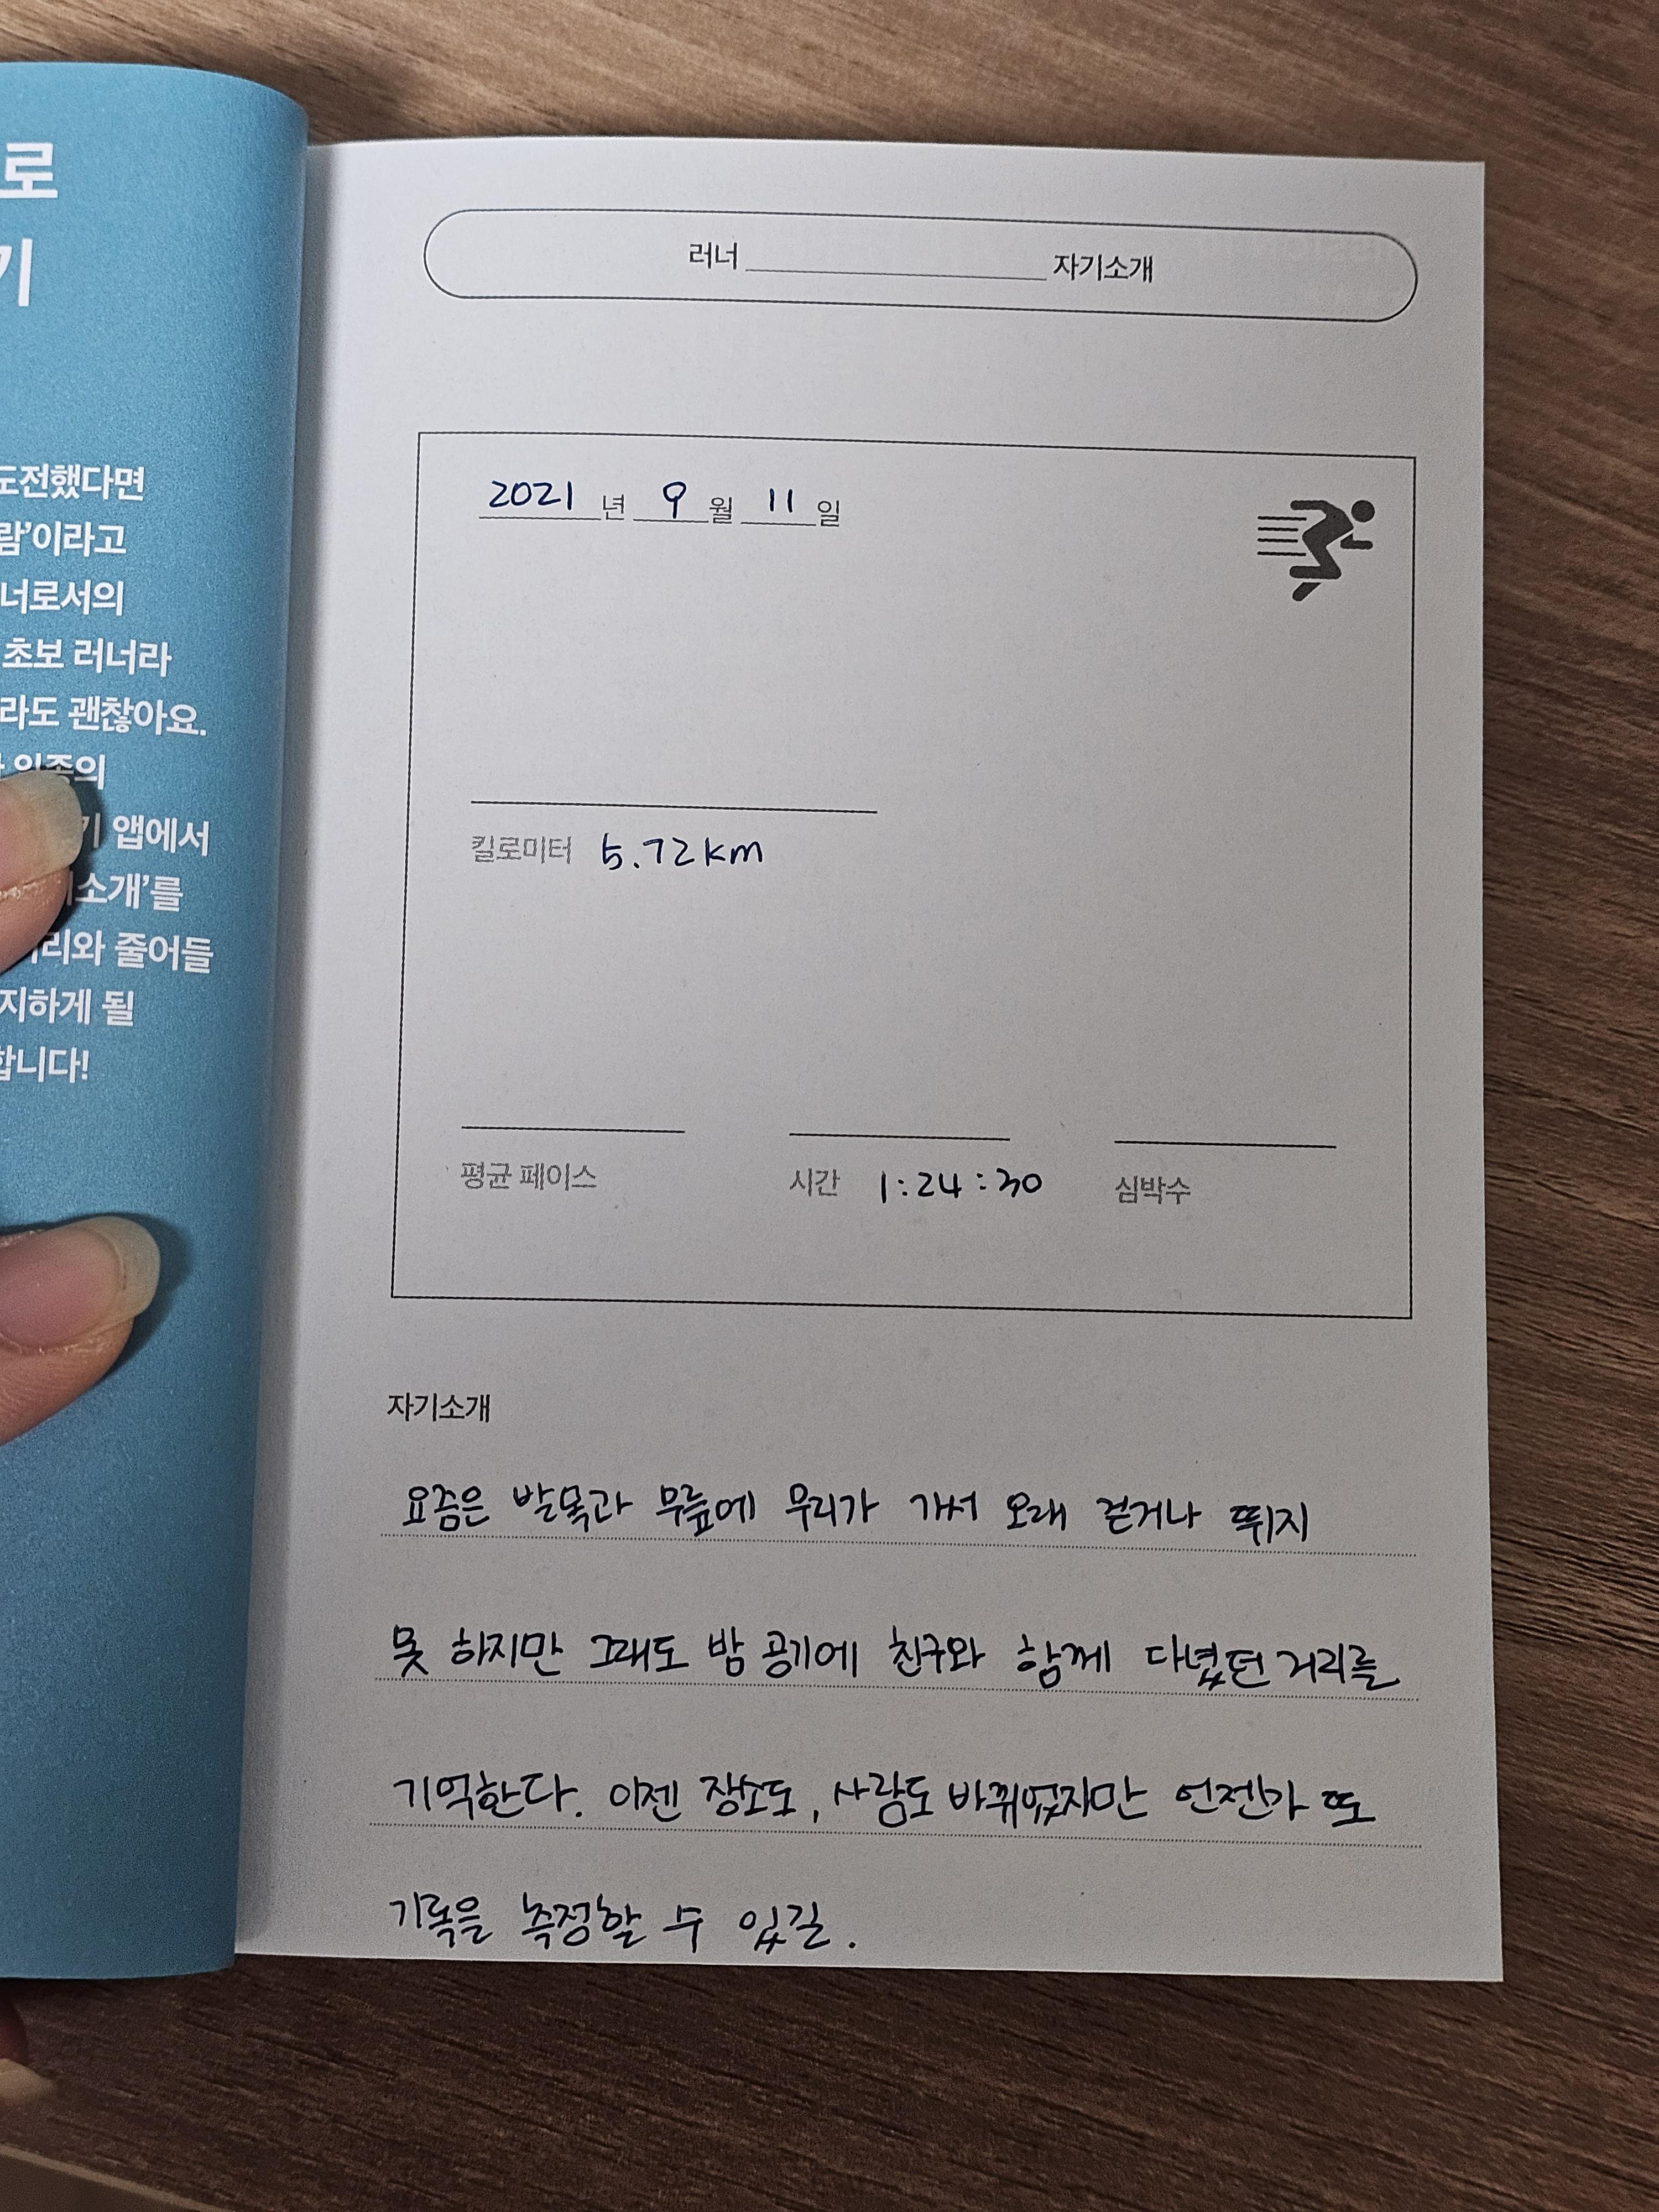 로
기
도전했다면
람’이라고
너로서의
초보 러너라
라도 괜찮아요.
일종의
기 앱에서
소개’를
리와 줄어들
지하게 될
합니다!
러너 자기소개
2021 년 9 월 11 일
킬로미터 5.72km
평균 페이스 시간 1:24:30 심박수
자기소개
요즘은 발목과 무릎에 무리가 가서 오래 걷거나 뛰지
못 하지만 그때도 밤 공기에 친구와 함께 다녔던 거리를
기억한다. 이젠 장소도, 사람도 바뀌었지만 언젠가 또
기록을 측정할 수 있길.